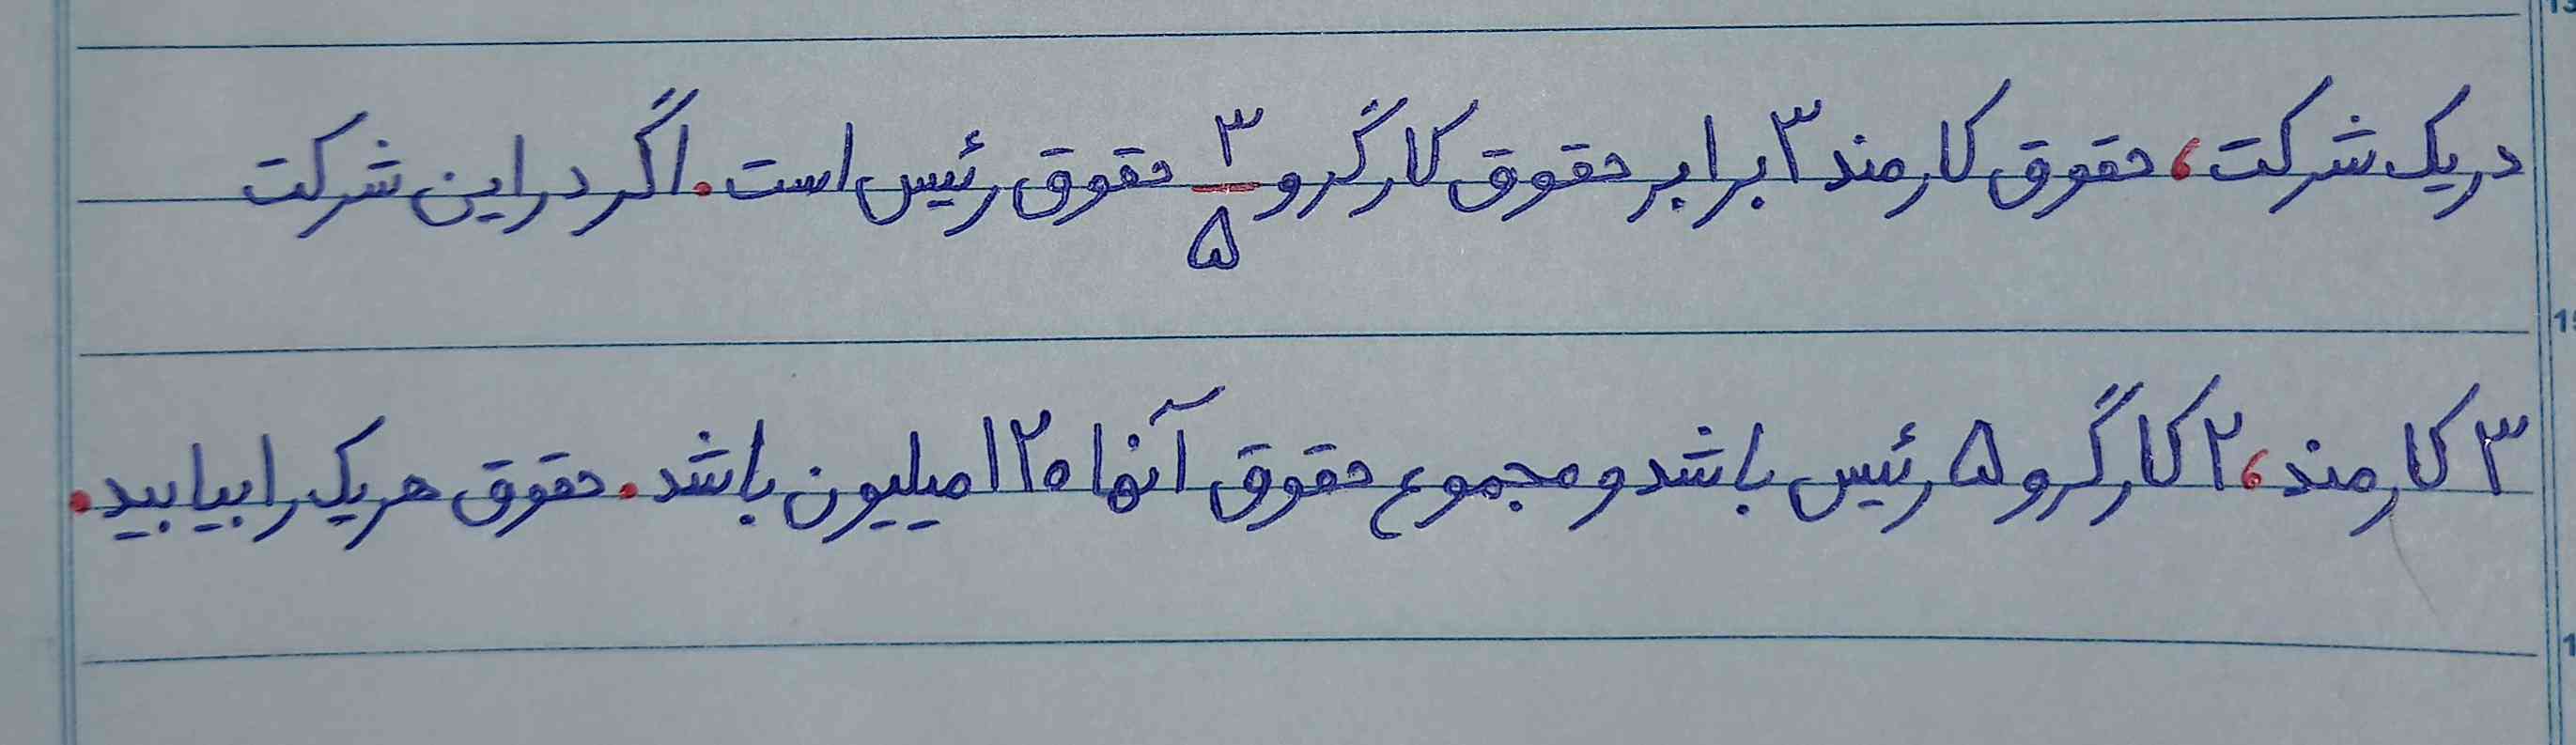 در یک شرکت، حقوق کارمند ۳ برابر حقوق کارگر و ۳/۵ حقوق رئیس است. اگر در این شرکت
۳ کارمند، ۲ کارگر و ۵ رئیس باشد و مجموع حقوق آنها ۱۲۰ میلیون باشد. حقوق هر یک را بیابید.